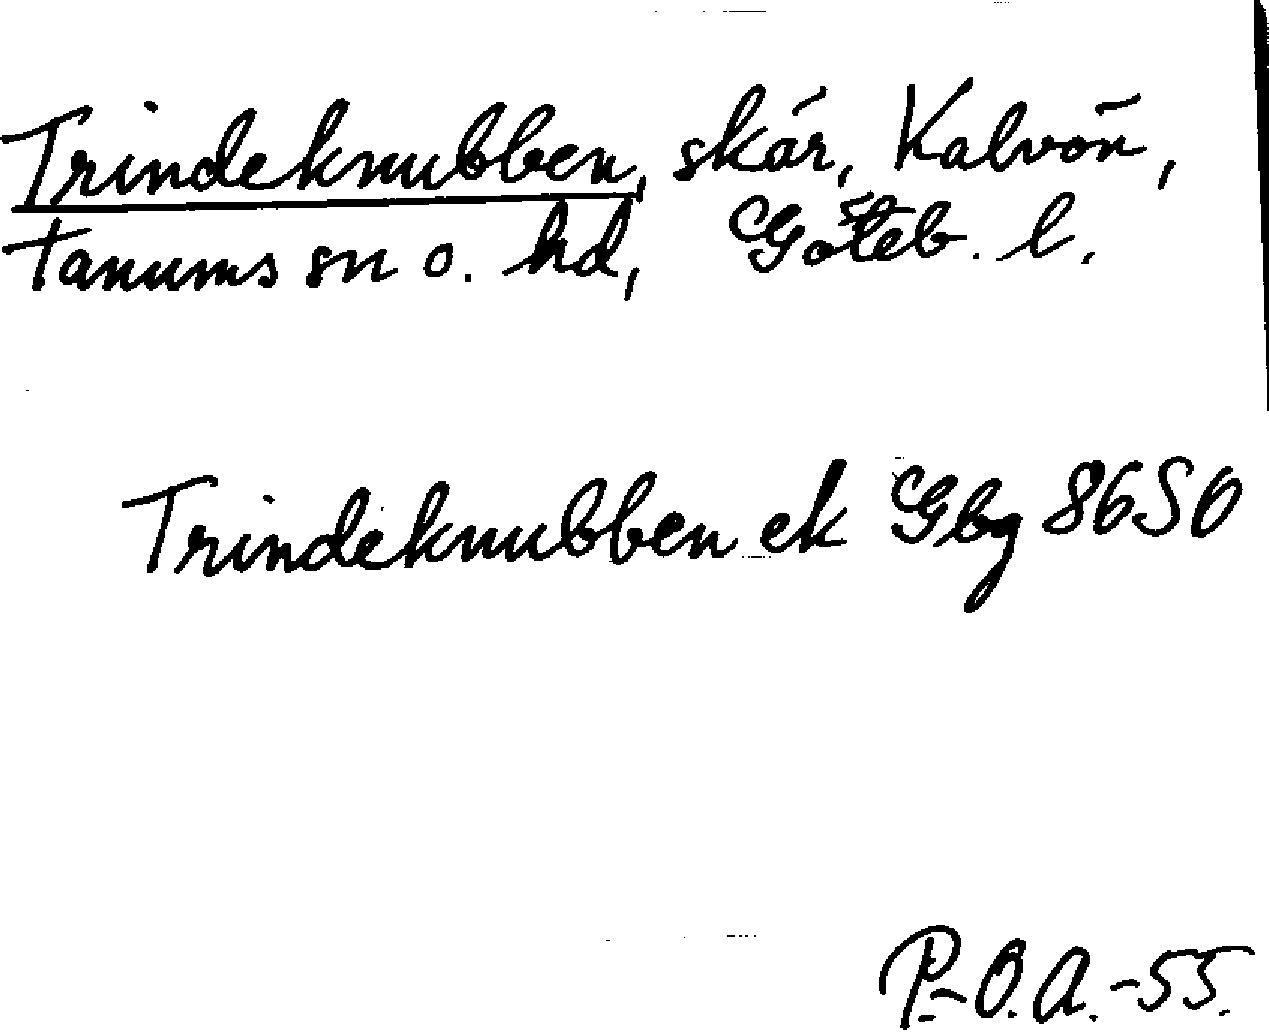 Trindeknubben, skär, Kalvön,
Tanums sn o. hd, Göteb. l.
Trindeknubben ek Gbg 86SO
P.-O.A.-55.